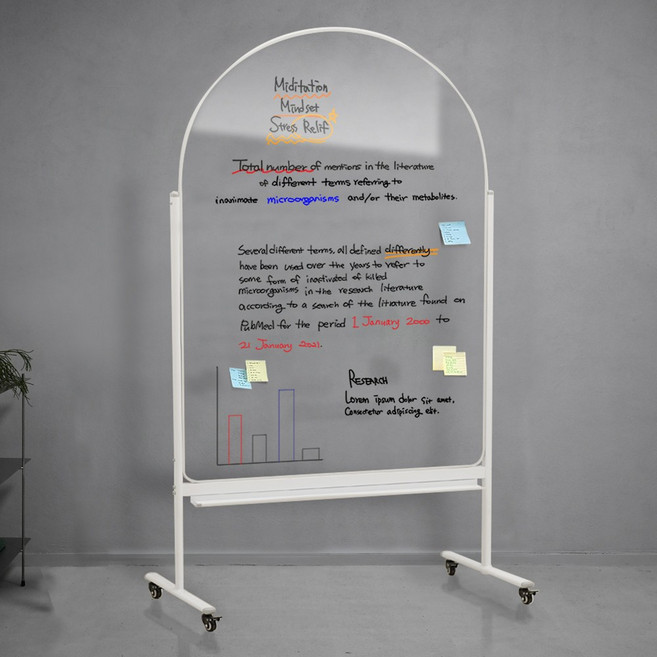 Miditation
Mindset
Stress Relif
Total number of mentions in the literature
of different terms referring to
inanimate microorganisms and/or their metabolites.
Several different terms, all defined differently
have been used over the years to refer to
some form of inactivated of killed
microorganisms in the research literature
according to a search of the litirature found on
PubMed for the period 1 January 2000 to
21 January 2021.
RESEARCH
Lorem ipsum dolor sit amet,
Consectetur adipiscing elit.